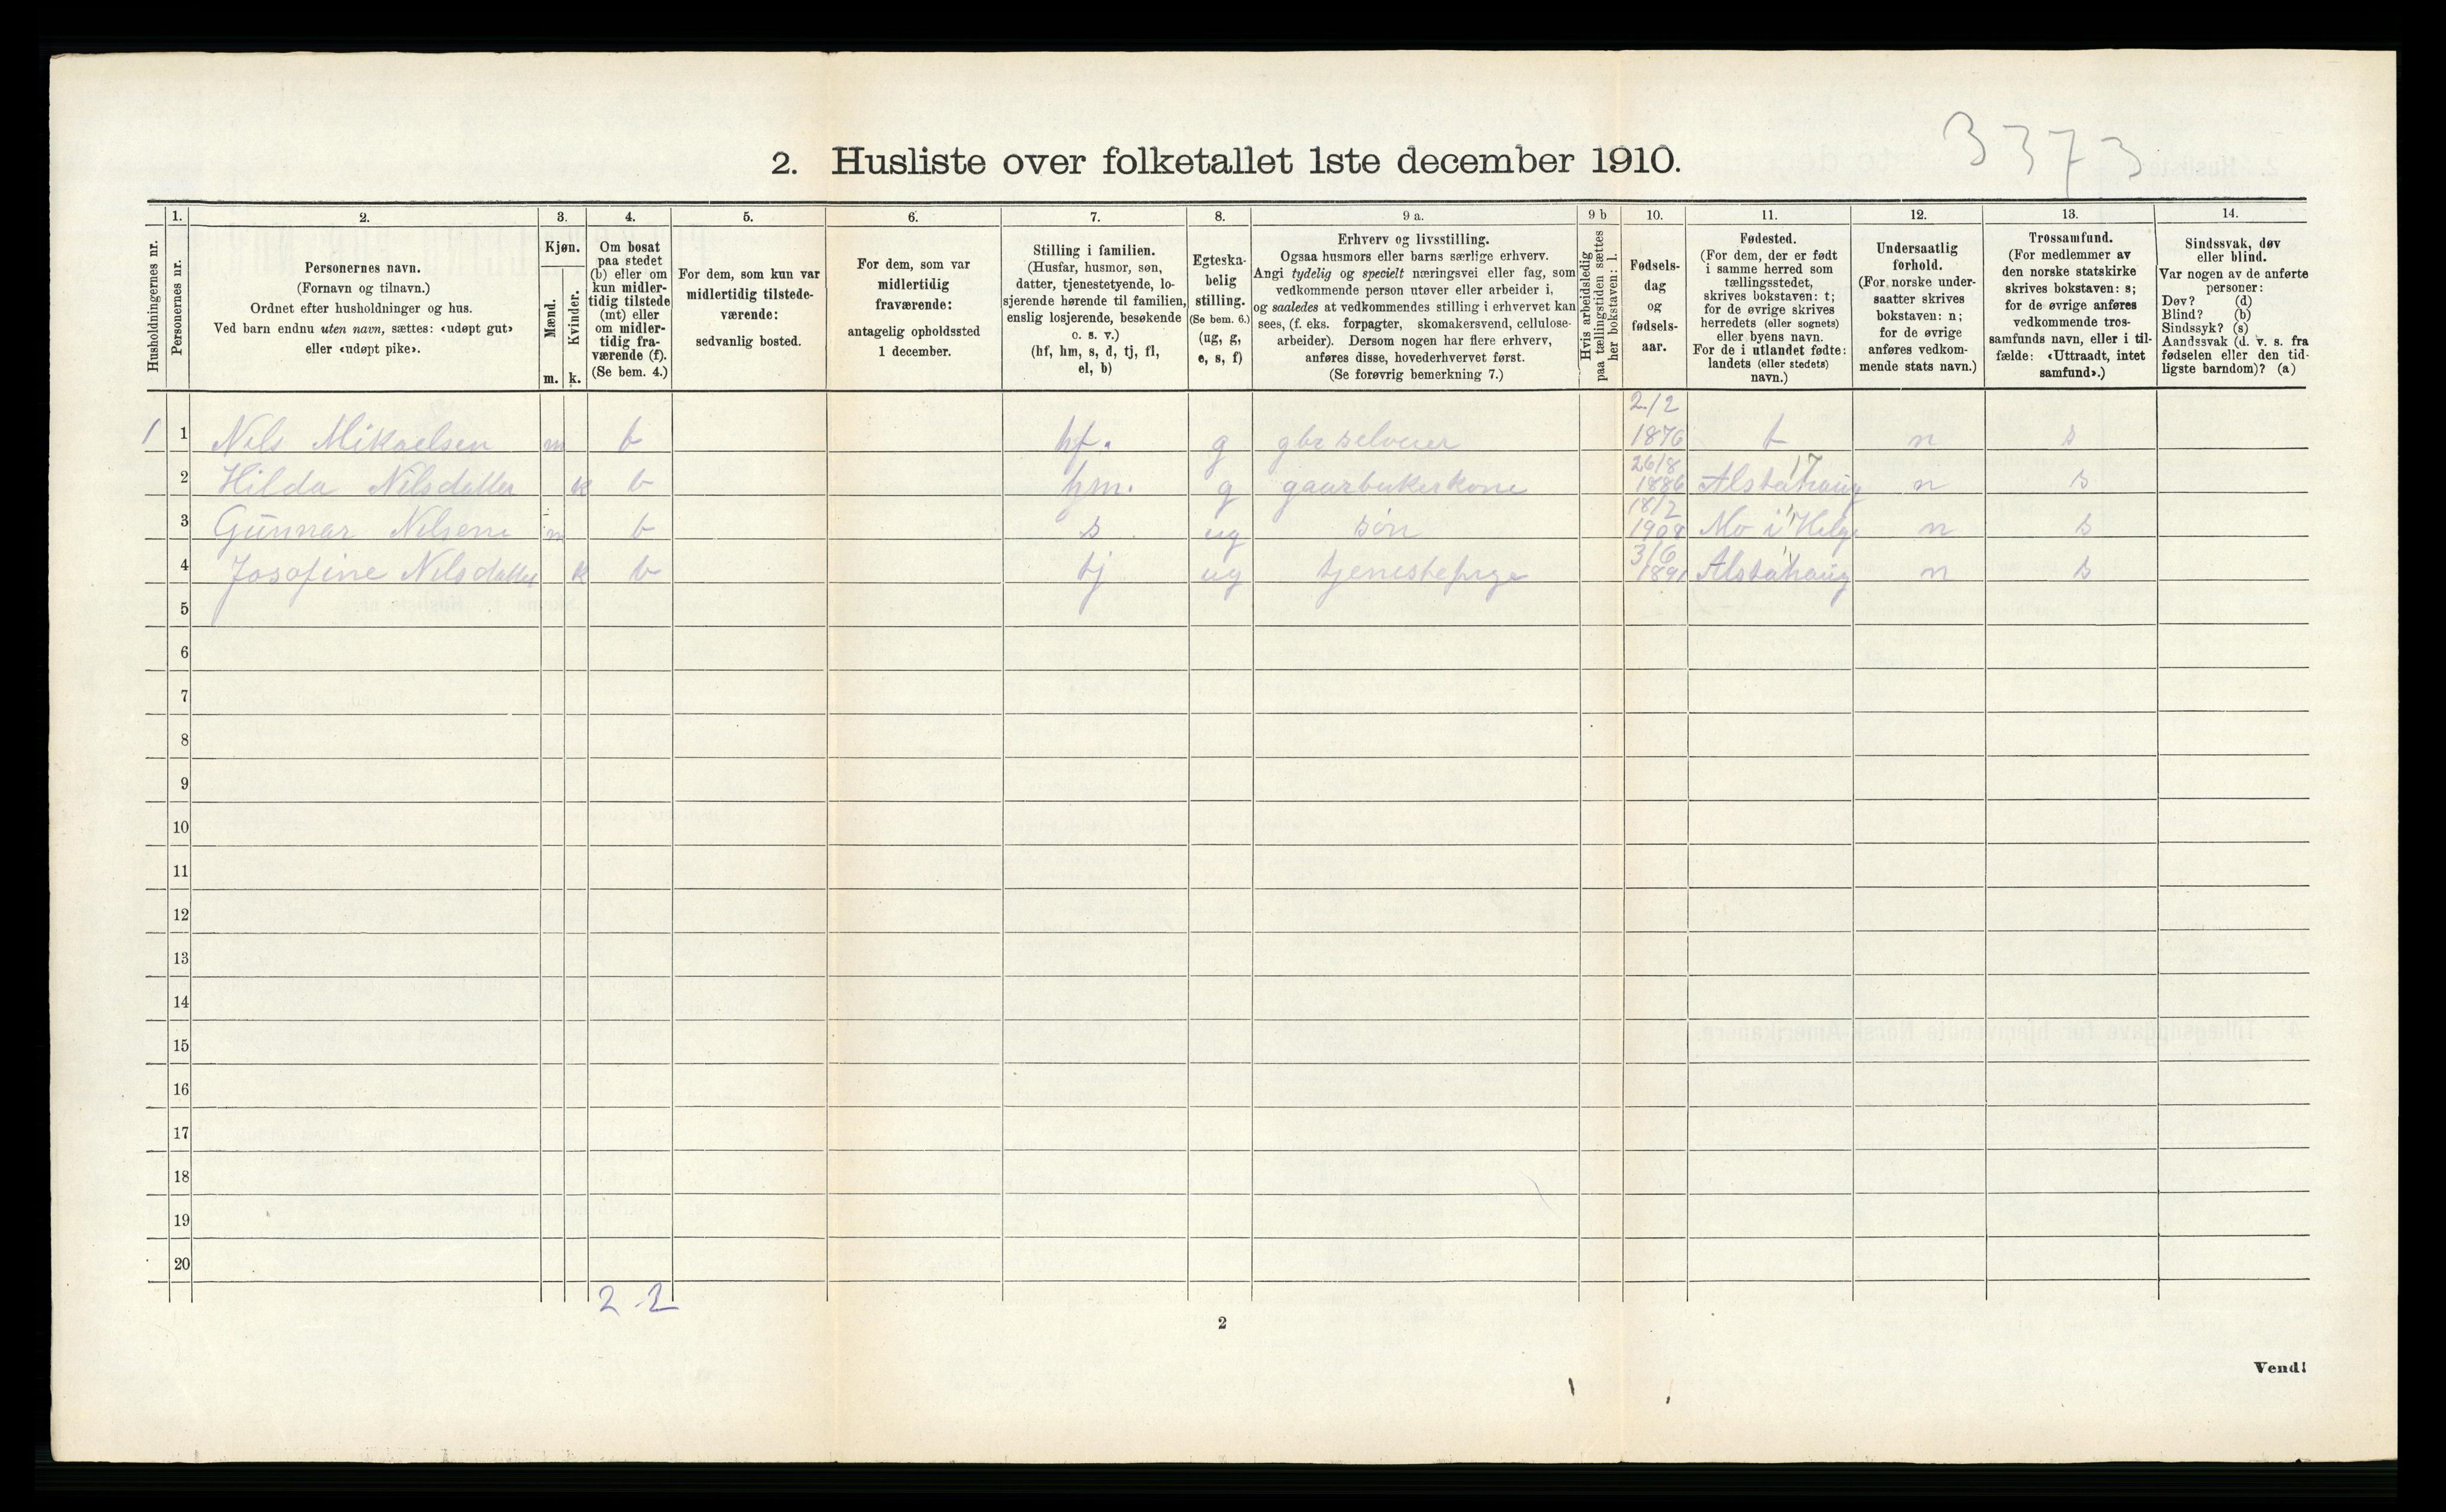 3373
2. Husliste over folketallet 1ste december 1910.
Husholdningernes nr.
1.
Personernes nr.
2.
Personernes navn.
(Fornavn og tilnavn.)
Ordnet efter husholdninger og hus.
Ved barn endnu uten navn, sættes: «udøpt gut»
eller «udøpt pike».
3.
Kjøn.
Mænd.
Kvinder.
m. k.
4.
Om bosat
paa stedet
(b) eller om
kun midler-
tidig tilstede
(mt) eller
om midler-
tidig fra-
værende (f).
(Se bem. 4.)
5.
For dem, som kun var
midlertidig tilstede-
værende:
sedvanlig bosted.
6.
For dem, som var
midlertidig
fraværende:
antagelig opholdssted
1 december.
7.
Stilling i familien.
(Husfar, husmor, søn,
datter, tjenestetyende, lo-
sjerende hørende til familien,
enslig losjerende, besøkende
o. s. v.)
(hf, hm, s, d, tj, fl,
el, b)
8.
Egteska-
belig
stilling.
(Se bem. 6.)
(ug, g,
e, s, f)
9 a.
Erhverv og livsstilling.
Ogsaa husmors eller barns særlige erhverv.
Angi tydelig og specielt næringsvei eller fag, som
vedkommende person utøver eller arbeider i,
og saaledes at vedkommendes stilling i erhvervet kan
sees, (f. eks. forpagter, skomakersvend, cellulose-
arbeider). Dersom nogen har flere erhverv,
anføres disse, hovederhvervet først.
(Se forøvrig bemerkning 7.)
9 b
Hvis arbeidsledig
paa tællingstiden sættes
her bokstaven: l.
10.
Fødsels-
dag
og
fødsels-
aar.
11.
Fødested.
(For dem, der er født
i samme herred som
tællingsstedet,
skrives bokstaven: t;
for de øvrige skrives
herredets (eller sognets)
eller byens navn.
For de i utlandet fødte:
landets (eller stedets)
navn.)
12.
Undersaatlig
forhold.
(For norske under-
saatter skrives
bokstaven: n;
for de øvrige
anføres vedkom-
mende stats navn.)
13.
Trossamfund.
(For medlemmer av
den norske statskirke
skrives bokstaven: s;
for de øvrige anføres
vedkommende tros-
samfunds navn, eller i til-
fælde: «Uttraadt, intet
samfund».)
14.
Sindssvak, døv
eller blind.
Var nogen av de anførte
personer:
Døv? (d)
Blind? (b)
Sindssyk? (s)
Aandssvak (d. v. s. fra
fødselen eller den tid-
ligste barndom)? (a)
1 1 Nils Mikaelsen m b hf. g gbr selveier 2/2 1876 t n s
2 Hilda Nilsdatter k b hm. g gaarbrukerkone 26/8 1886 Alstahaug n s
3 Gunnar Nilsen m b s ug søn 18/2 Mo i Helg. n s
4 Josofine Nilsdatter k b tj ug tjenestepige 3/6 1891 Alstahaug n s
5
6
7
8
9
10
11
12
13
14
15
16
17
18
19
20
2 2
2
Vend!